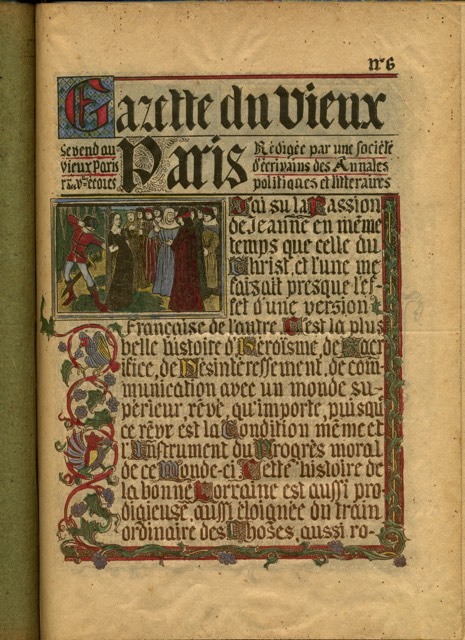 nº 6
Gazette du Vieux
Paris
Se vend au
vieux Paris
Rédigée par une société
d'écrivains des Annales
politiques et littéraires
J'ai su la Passion
de Jeanne en même
temps que celle du
Christ, et l'une me
faisait presque l'ef-
fet d'une version
Française de l'autre. C'est la plus
belle histoire d'Héroïsme, de Sacr
ifice, de Désintéressement, de com-
munication avec un monde su-
périeur, rêvé, qu'importe, puisque
ce rêve est la Condition même et
l'Instrument du Progrès moral
de ce Monde-ci. Cette histoire de
la bonne Lorraine est aussi pro-
digieuse, aussi éloignée du train
ordinaire des Choses, aussi ro-